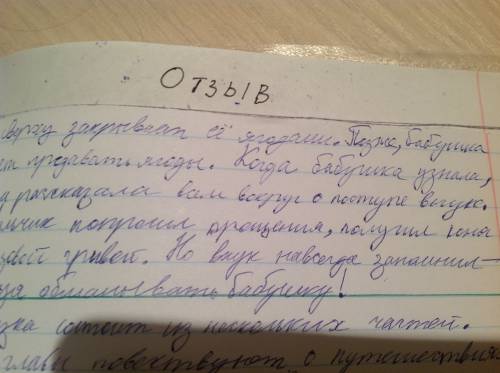 Отзыв
сверху закрывает её ягодами. Позже, бабушка
продавать ягоды. Когда бабушка узнала,
рассказала вам вокруг о поступе внук.
попросил прощения, получил коня
гривой. Но внук навсегда запомнил –
обманывать бабушку!
состоит из нескольких частей.
главы повествуют о путешествия